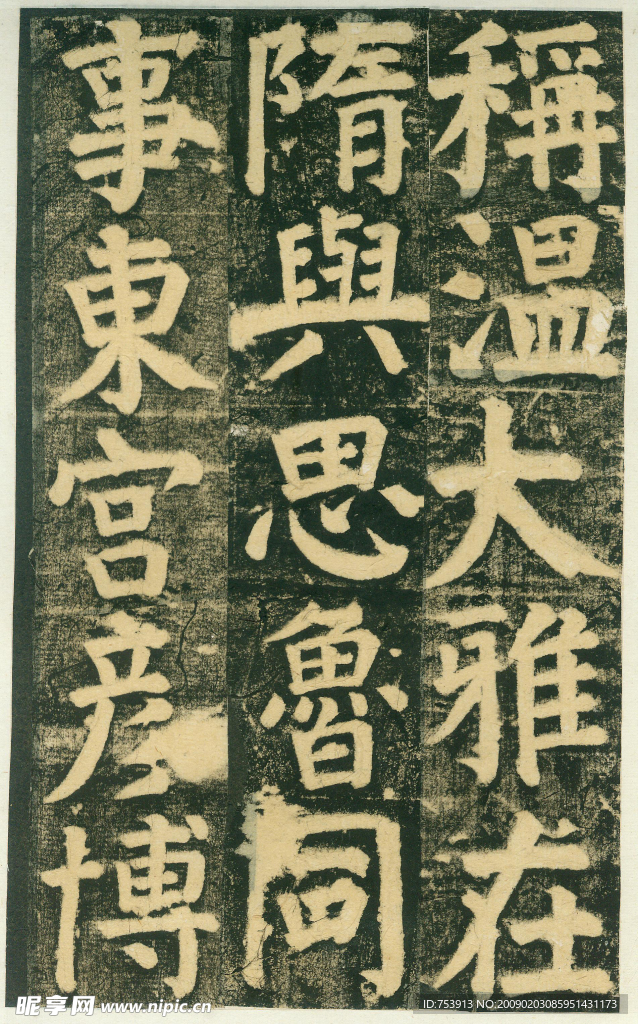 稱温大雅在
隋與思魯同
事東宮彦博
昵享网 www.nipic.cn
ID:753913 NO:20090203085951431173